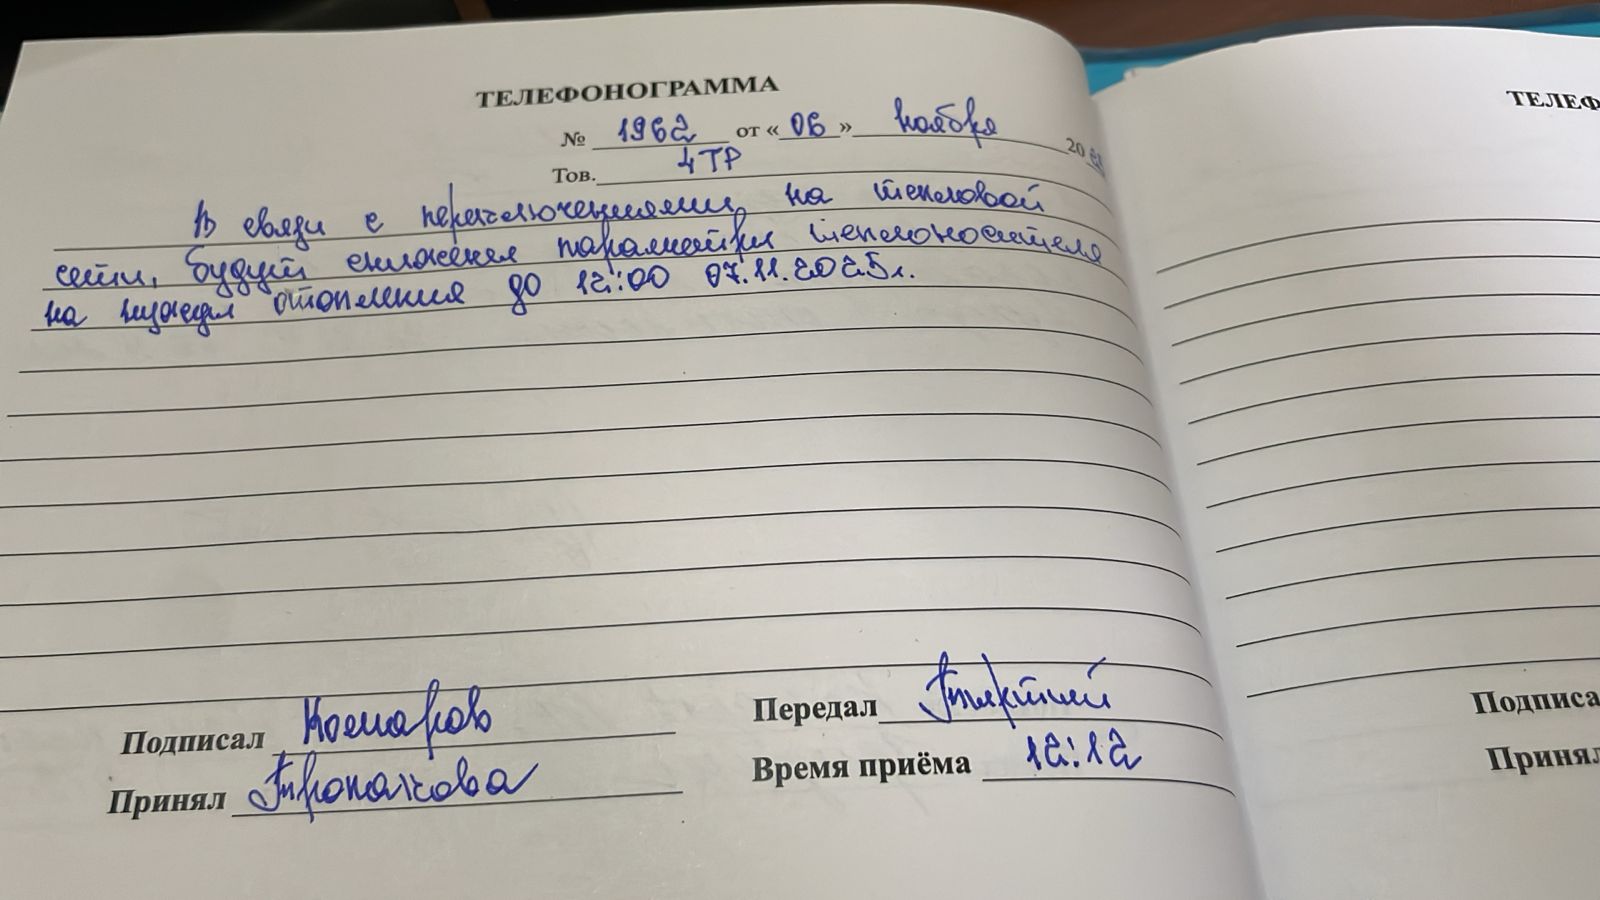 ТЕЛЕФОНОГРАММА
№ 1962 от « 06 » ноября 20
Тов. 4 ТР
В связи с переключениями на тепловой
сети, будут снижения параметры теплоносителя
на нужды отопления до 12:00 07.11.2025г.
Подписал Комаров
Передал
Принял
Время приёма 12:12
ТЕЛЕФ
Подписа
Принял